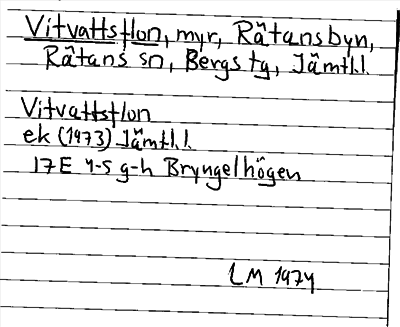 Vitvattsflon, myr, Rätansbyn,
Rätans sn, Bergs tg, Jämtl.l.
Vitvattsflon
ek (1973) Jämtl.l.
17E 4-5 g-h Bryngelhögen
LM 1974